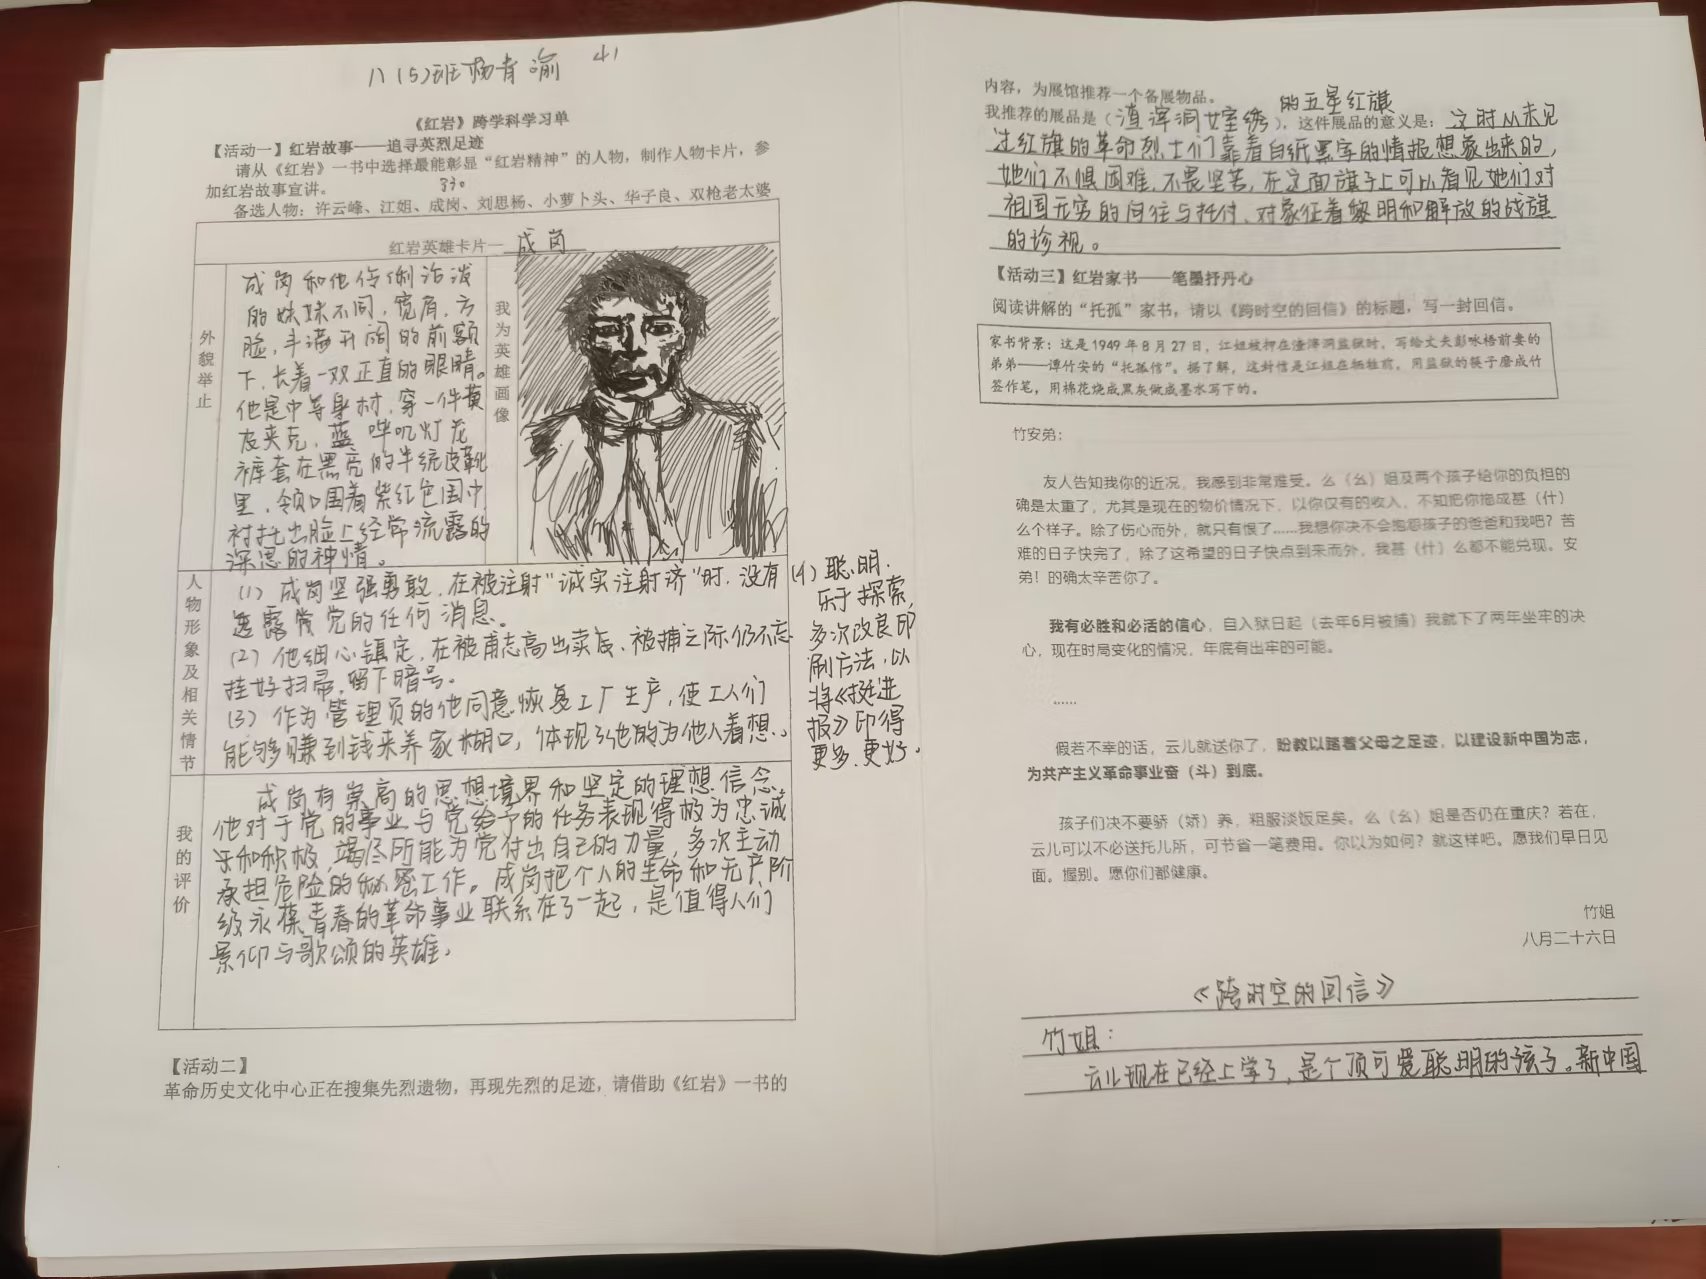 八(5)班杨青渝 41
《红岩》跨学科学习单
【活动一】红岩故事——追寻英烈足迹
请从《红岩》一书中选择最能彰显“红岩精神”的人物，制作人物卡片，参
加红岩故事宣讲。
330
备选人物：许云峰、江姐、成岗、刘思杨、小萝卜头、华子良、双枪老太婆
红岩英雄卡片— 成岗
外貌举止
成岗和他伶俐活泼
的妹妹不同，宽肩，方
脸，丰满开阔的前额
下，长着一双正直的眼睛。
他是中等身材，穿一件
皮夹克，蓝哔叽灯花
裤套在黑亮的半统皮靴
里，领口围着紫红色围巾
衬托出脸上经常流露的
深思的神情。
我为英雄画像
人物形象及相关情节
(1) 成岗坚强勇敢，在被注射“诚实注射济”时，没有
透露党的任何消息。
(2) 他细心镇定，在被甫志高出卖后，被捕之际仍不忘
挂好扫帚，留下暗号。
(3) 作为管理员的他同意恢复工厂生产，使工人们
能够赚到钱来养家糊口，体现了他的为他人着想。
(4) 聪明，
乐于探索，
多次改良印
刷方法，以
将《挺进
报》印得
更多、更好。
我的评价
成岗有崇高的思想境界和坚定的理想信念，
他对于党的事业与党给予的任务表现得极为忠诚
乐和积极，竭尽所能为党付出自己的力量，多次主动
承担危险的秘密工作。成岗把个人的生命和无产阶
级永葆青春的革命事业联系在了一起，是值得人们
景仰与歌颂的英雄。
【活动二】
革命历史文化中心正在搜集先烈遗物，再现先烈的足迹，请借助《红岩》一书的
内容，为展馆推荐一个备展物品。
我推荐的展品是（渣滓洞女室绣的五星红旗），这件展品的意义是：这时从未见
过红旗的革命烈士们靠着白纸黑字的情报想象出来的，
她们不惧困难，不畏坚苦，在这面旗子上可以看见她们对
祖国无穷的向往与托付、对象征着黎明和解放的战旗
的诊视。
【活动三】红岩家书——笔墨抒丹心
阅读讲解的“托孤”家书，请以《跨时空的回信》的标题，写一封回信。
家书背景：这是1949年8月27日，江姐被押在渣滓洞监狱时，写给丈夫彭咏梧前妻的
弟弟——谭竹安的“托孤信”。据了解，这封信是江姐在牺牲前，用监狱的筷子磨成竹
签作笔，用棉花烧成黑灰做成墨水写下的。
竹安弟：
友人告知我你的近况，我感到非常难受。么（幺）姐及两个孩子给你的负担的
确是太重了，尤其是现在的物价情况下，以你仅有的收入，不知把你拖成甚（什）
么个样子。除了伤心而外，就只有恨了……我想你决不会抱怨孩子的爸爸和我吧？苦
难的日子快完了，除了这希望的日子快点到来而外，我甚（什）么都不能兑现。安
弟！的确太辛苦你了。
我有必胜和必活的信心，自入狱日起（去年6月被捕）我就下了两年坐牢的决
心，现在时局变化的情况，年底有出牢的可能。
……
假若不幸的话，云儿就送你了，盼教以踏着父母之足迹，以建设新中国为志，
为共产主义革命事业奋（斗）到底。
孩子们决不要骄（娇）养，粗服淡饭足矣。么（幺）姐是否仍在重庆？若在，
云儿可以不必送托儿所，可节省一笔费用。你以为如何？就这样吧。愿我们早日见
面。握别。愿你们都健康。
竹姐
八月二十六日
《跨时空的回信》
竹姐：
云儿现在已经上学了，是个顶可爱聪明的孩子。新中国